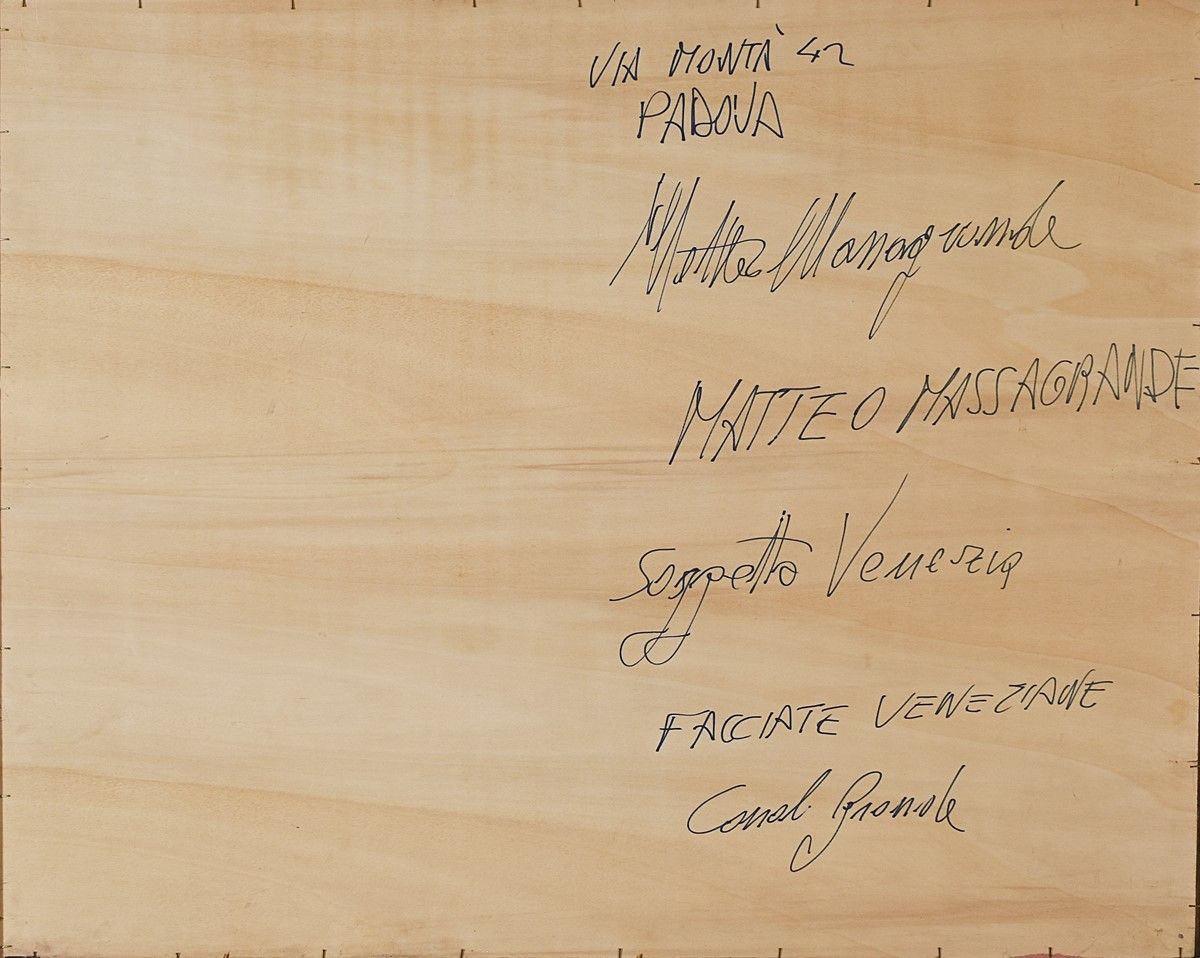 VIA MONTÀ 42
PADOVA
Matteo Massagrande
MATTEO MASSAGRANDE
Soggetto Venezia
FACCIATE VENEZIANE
Canal Grande